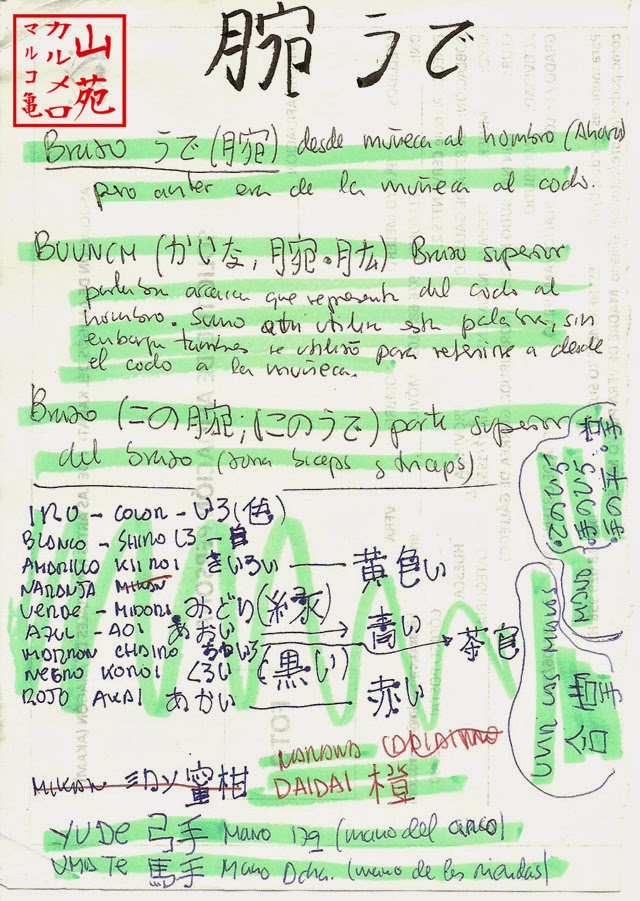 山苑
カルメロ
マルコ亀
腕 うで
Brazo うで (腕) desde muñeca al hombro (Ahora)
pero antes era de la muñeca al codo.
(かいな, 腕・肱) Brazo superior
palabra arcaica que representa del codo al
hombro. Sumo aún utiliza esta palabra, sin
embargo también se utilizó para referirse a desde
el codo a la muñeca.
Brazo (二の腕; にのうで) parte superior
del brazo (zona biceps y triceps)
IRO - COLOR - いろ (色)
BLANCO - SHIRO しろ - 白
AMARILLO KIIROI きいろい — 黄色い
NARANJA MIKAN
VERDE - MIDORI みどり (緑)
AZUL - AOI あおい → 高い
MARRON CHAIRO ちゃいろ → 茶色
NEGRO KUROI くろい (黒い)
ROJO AKAI あかい — 赤い
てのひら
手のひら
手の平・掌
MANO
UNIR LAS MANOS
合掌
MIKAN ミカン 蜜柑
NARANJA
DAIDAI 橙
YUDE 弓手 Mano izq (mano del arco)
UMATE 馬手 Mano Dcha. (mano de las riendas)